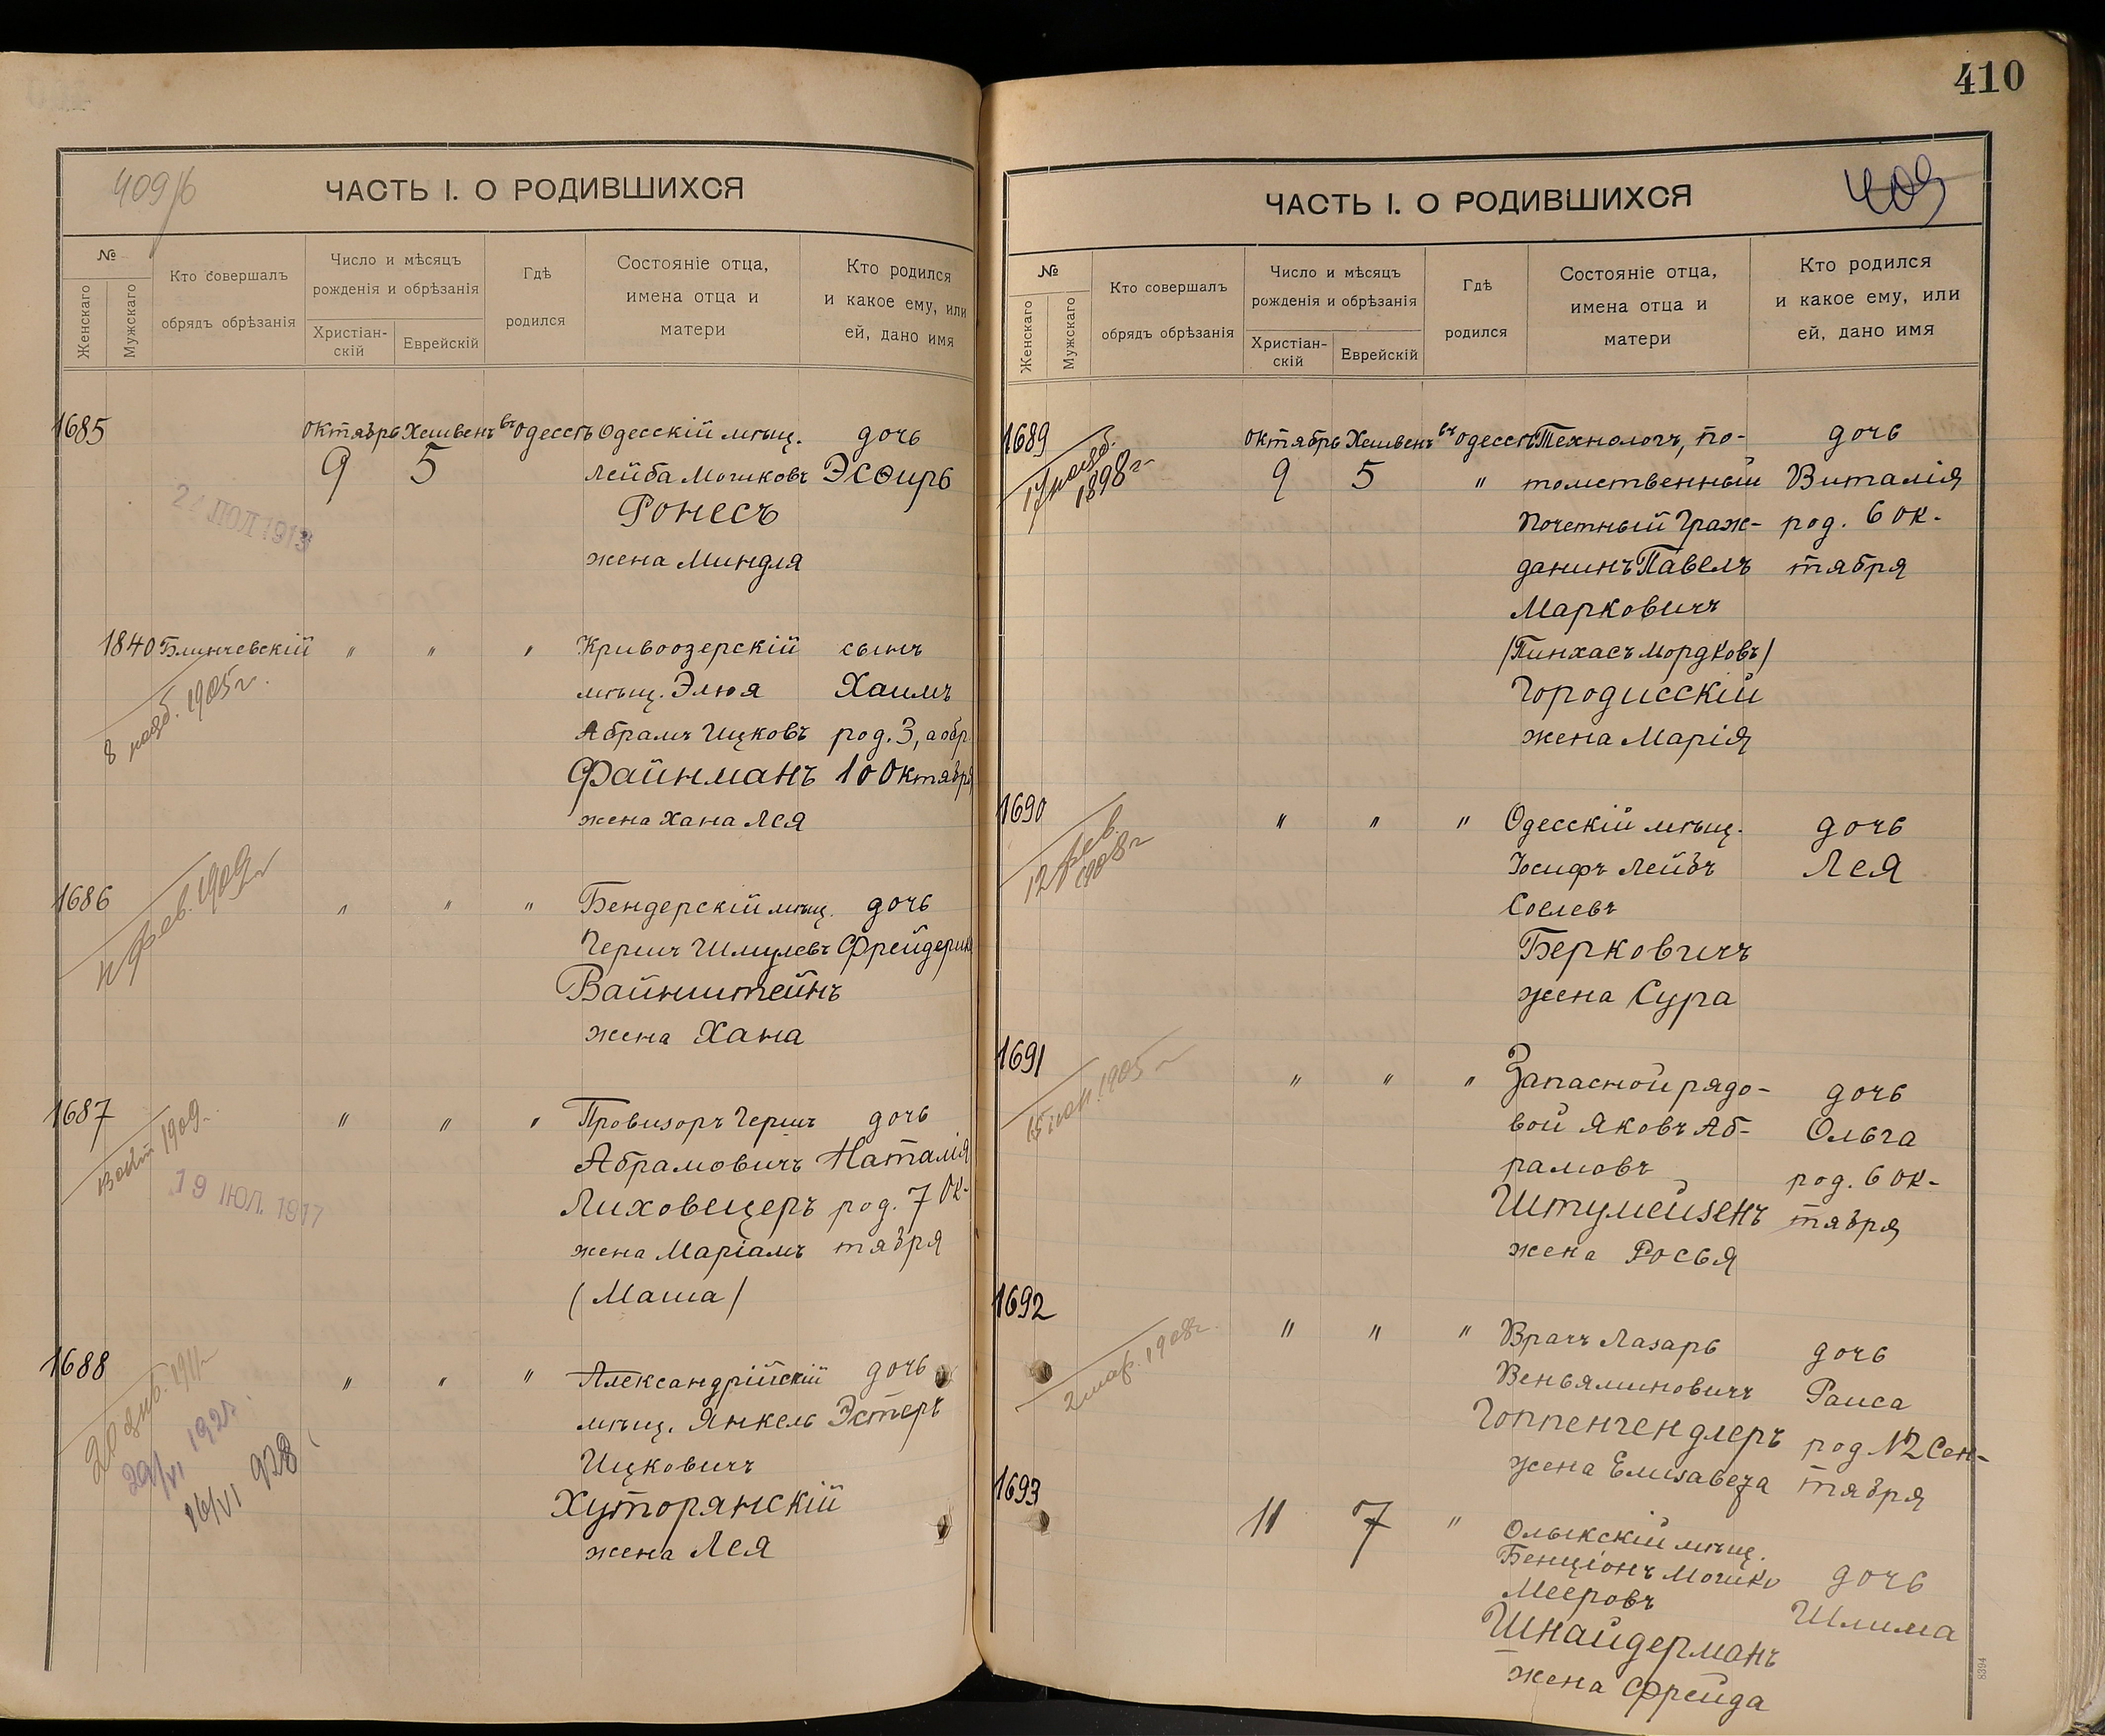 409/б
ЧАСТЬ I. О РОДИВШИХСЯ
№
Женскаго
Мужскаго
Кто совершалъ
обрядъ обрѣзанія
Число и мѣсяцъ
рожденія и обрѣзанія
Христіан-
скій
Еврейскій
Гдѣ
родился
Состояніе отца,
имена отца и
матери
Кто родился
и какое ему, или
ей, дано имя
1685 октябрь Хешвенъ въ Одессѣ Одесскій мѣщ. дочь
9 5 Лейба Мошковъ Эсѳирь
Ронесъ
жена Миндля
1913
1840 Блинчевскій " " " Кривоозерскій сынъ
8 нояб. 1905 г. мѣщ. Элюя Хаимъ
Абрамъ Ицковъ род. 3, а обр.
Файнманъ 10 Октября
жена Хана Лея
1686 " " " Бендерскій мѣщ. дочь
фев. 1909 г. Гершъ Шмулевъ Фрейдерика
Вайнштейнъ
жена Хана
1687 " " " Провизоръ Гершъ дочь
1909 Абрамовичъ Наталія
19 ІЮЛ. 1917 Лиховецеръ род. 7 Ок-
жена Маріамъ тября
(Маша)
1688 " " " Александрійскій дочь
1911 г. мѣщ. Янкель Эстеръ
29/VI 192 Ицковичъ
16/VI 928 Хуторянскій
жена Лея
410
409
ЧАСТЬ I. О РОДИВШИХСЯ
№
Женскаго
Мужскаго
Кто совершалъ
обрядъ обрѣзанія
Число и мѣсяцъ
рожденія и обрѣзанія
Христіан-
скій
Еврейскій
Гдѣ
родился
Состояніе отца,
имена отца и
матери
Кто родился
и какое ему, или
ей, дано имя
1689 октябрь Хешвенъ въ Одессѣ Технологъ, по- дочь
17 нояб. 9 5 " томственный Виталія
1898 г. Почетный Граж- род. 6 Ок-
данинъ Павелъ тября
Марковичъ
/Пинхасъ Мордковъ/
Городисскій
жена Марія
1690 " " " Одесскій мѣщ. дочь
12 фев. Іосифъ Лейбъ Лея
1908 г. Соелевъ
Берковичъ
жена Сура
1691 " " " Запасной рядо- дочь
15 1905 г. вой Яковъ Аб- Ольга
рамовъ род. 6 Ок-
Штумейзенъ тября
жена Росья
1692 " " " Врачъ Лазарь дочь
2 мар. 1908 г. Веньяминовичъ Раиса
Гоппенгендлеръ род. 12 Сен-
жена Елизавета тября
1693 11 7 " Олыкскій мѣщ.
Бенціонъ Мошко дочь
Мееровъ Шлима
Шнайдерманъ
жена Фрейда
8394